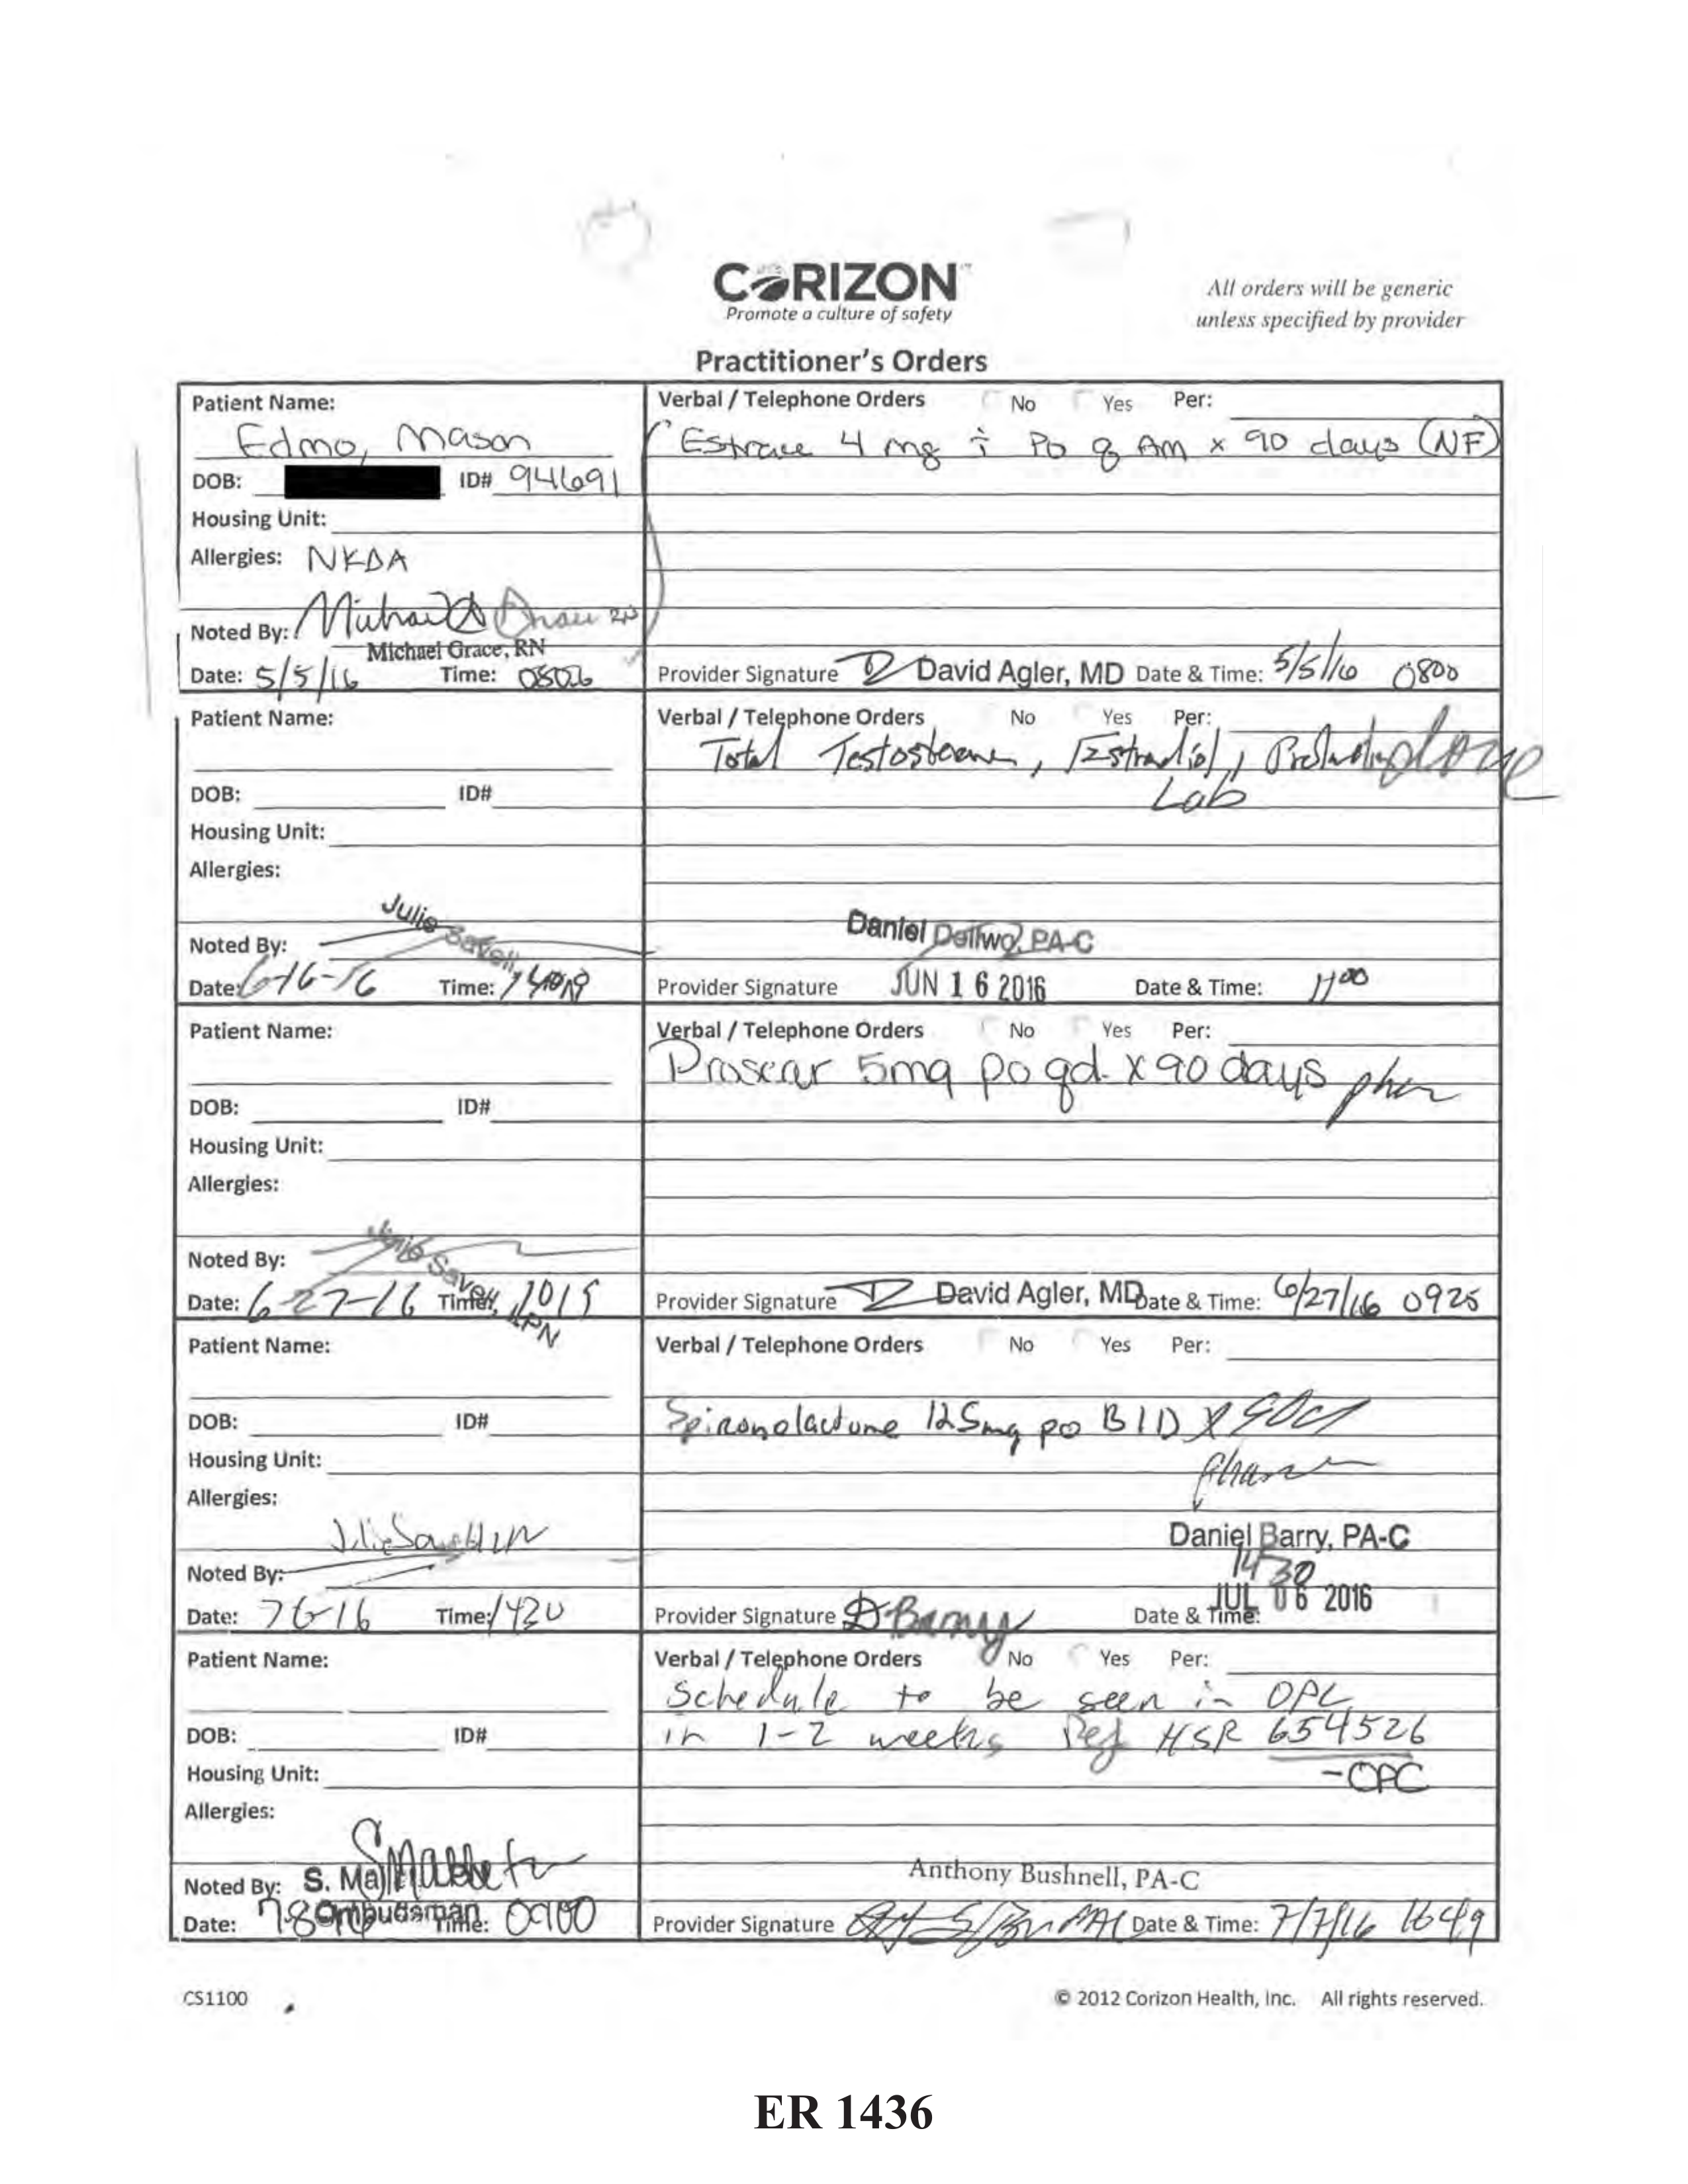 CORIZON™
Promote a culture of safety
All orders will be generic
unless specified by provider
Practitioner's Orders
Patient Name:
Edmo, Mason
DOB: ID# 94691
Housing Unit:
Allergies: NKDA
Noted By:
Michael Grace, RN
Date: 5/5/16 Time:
Verbal / Telephone Orders No Yes Per:
Estrace 4 mg i PO q AM x 90 days (NF)
Provider Signature David Agler, MD Date & Time: 5/5/16 0800
Patient Name:
DOB: ID#
Housing Unit:
Allergies:
Noted By: Julie Savell,
Date: 6-16-16 Time:
Verbal / Telephone Orders No Yes Per:
Total Testosterone, Estradiol,
Lab
Daniel Dellwo, PA-C
Provider Signature JUN 16 2016 Date & Time: 1100
Patient Name:
DOB: ID#
Housing Unit:
Allergies:
Noted By: Julie Savell, LPN
Date: 6-27-16 Time: 1015
Verbal / Telephone Orders No Yes Per:
Proscar 5mg po qd. x 90 days
Provider Signature David Agler, MD Date & Time: 6/27/16 0925
Patient Name:
DOB: ID#
Housing Unit:
Allergies:
Noted By:
Date: 7-6-16 Time: 1420
Verbal / Telephone Orders No Yes Per:
Spironolactone 125mg po BID X
Daniel Barry, PA-C
1430
Provider Signature D Barry Date & Time: JUL 06 2016
Patient Name:
DOB: ID#
Housing Unit:
Allergies:
Noted By: S.
Date: Ombudsman Time: 0900
Verbal / Telephone Orders No Yes Per:
Schedule to be seen in OPC
in 1-2 weeks Ref HSR 654526
-OPC
Anthony Bushnell, PA-C
Provider Signature Date & Time: 7/7/16 1649
CS1100
© 2012 Corizon Health, Inc. All rights reserved.
ER 1436